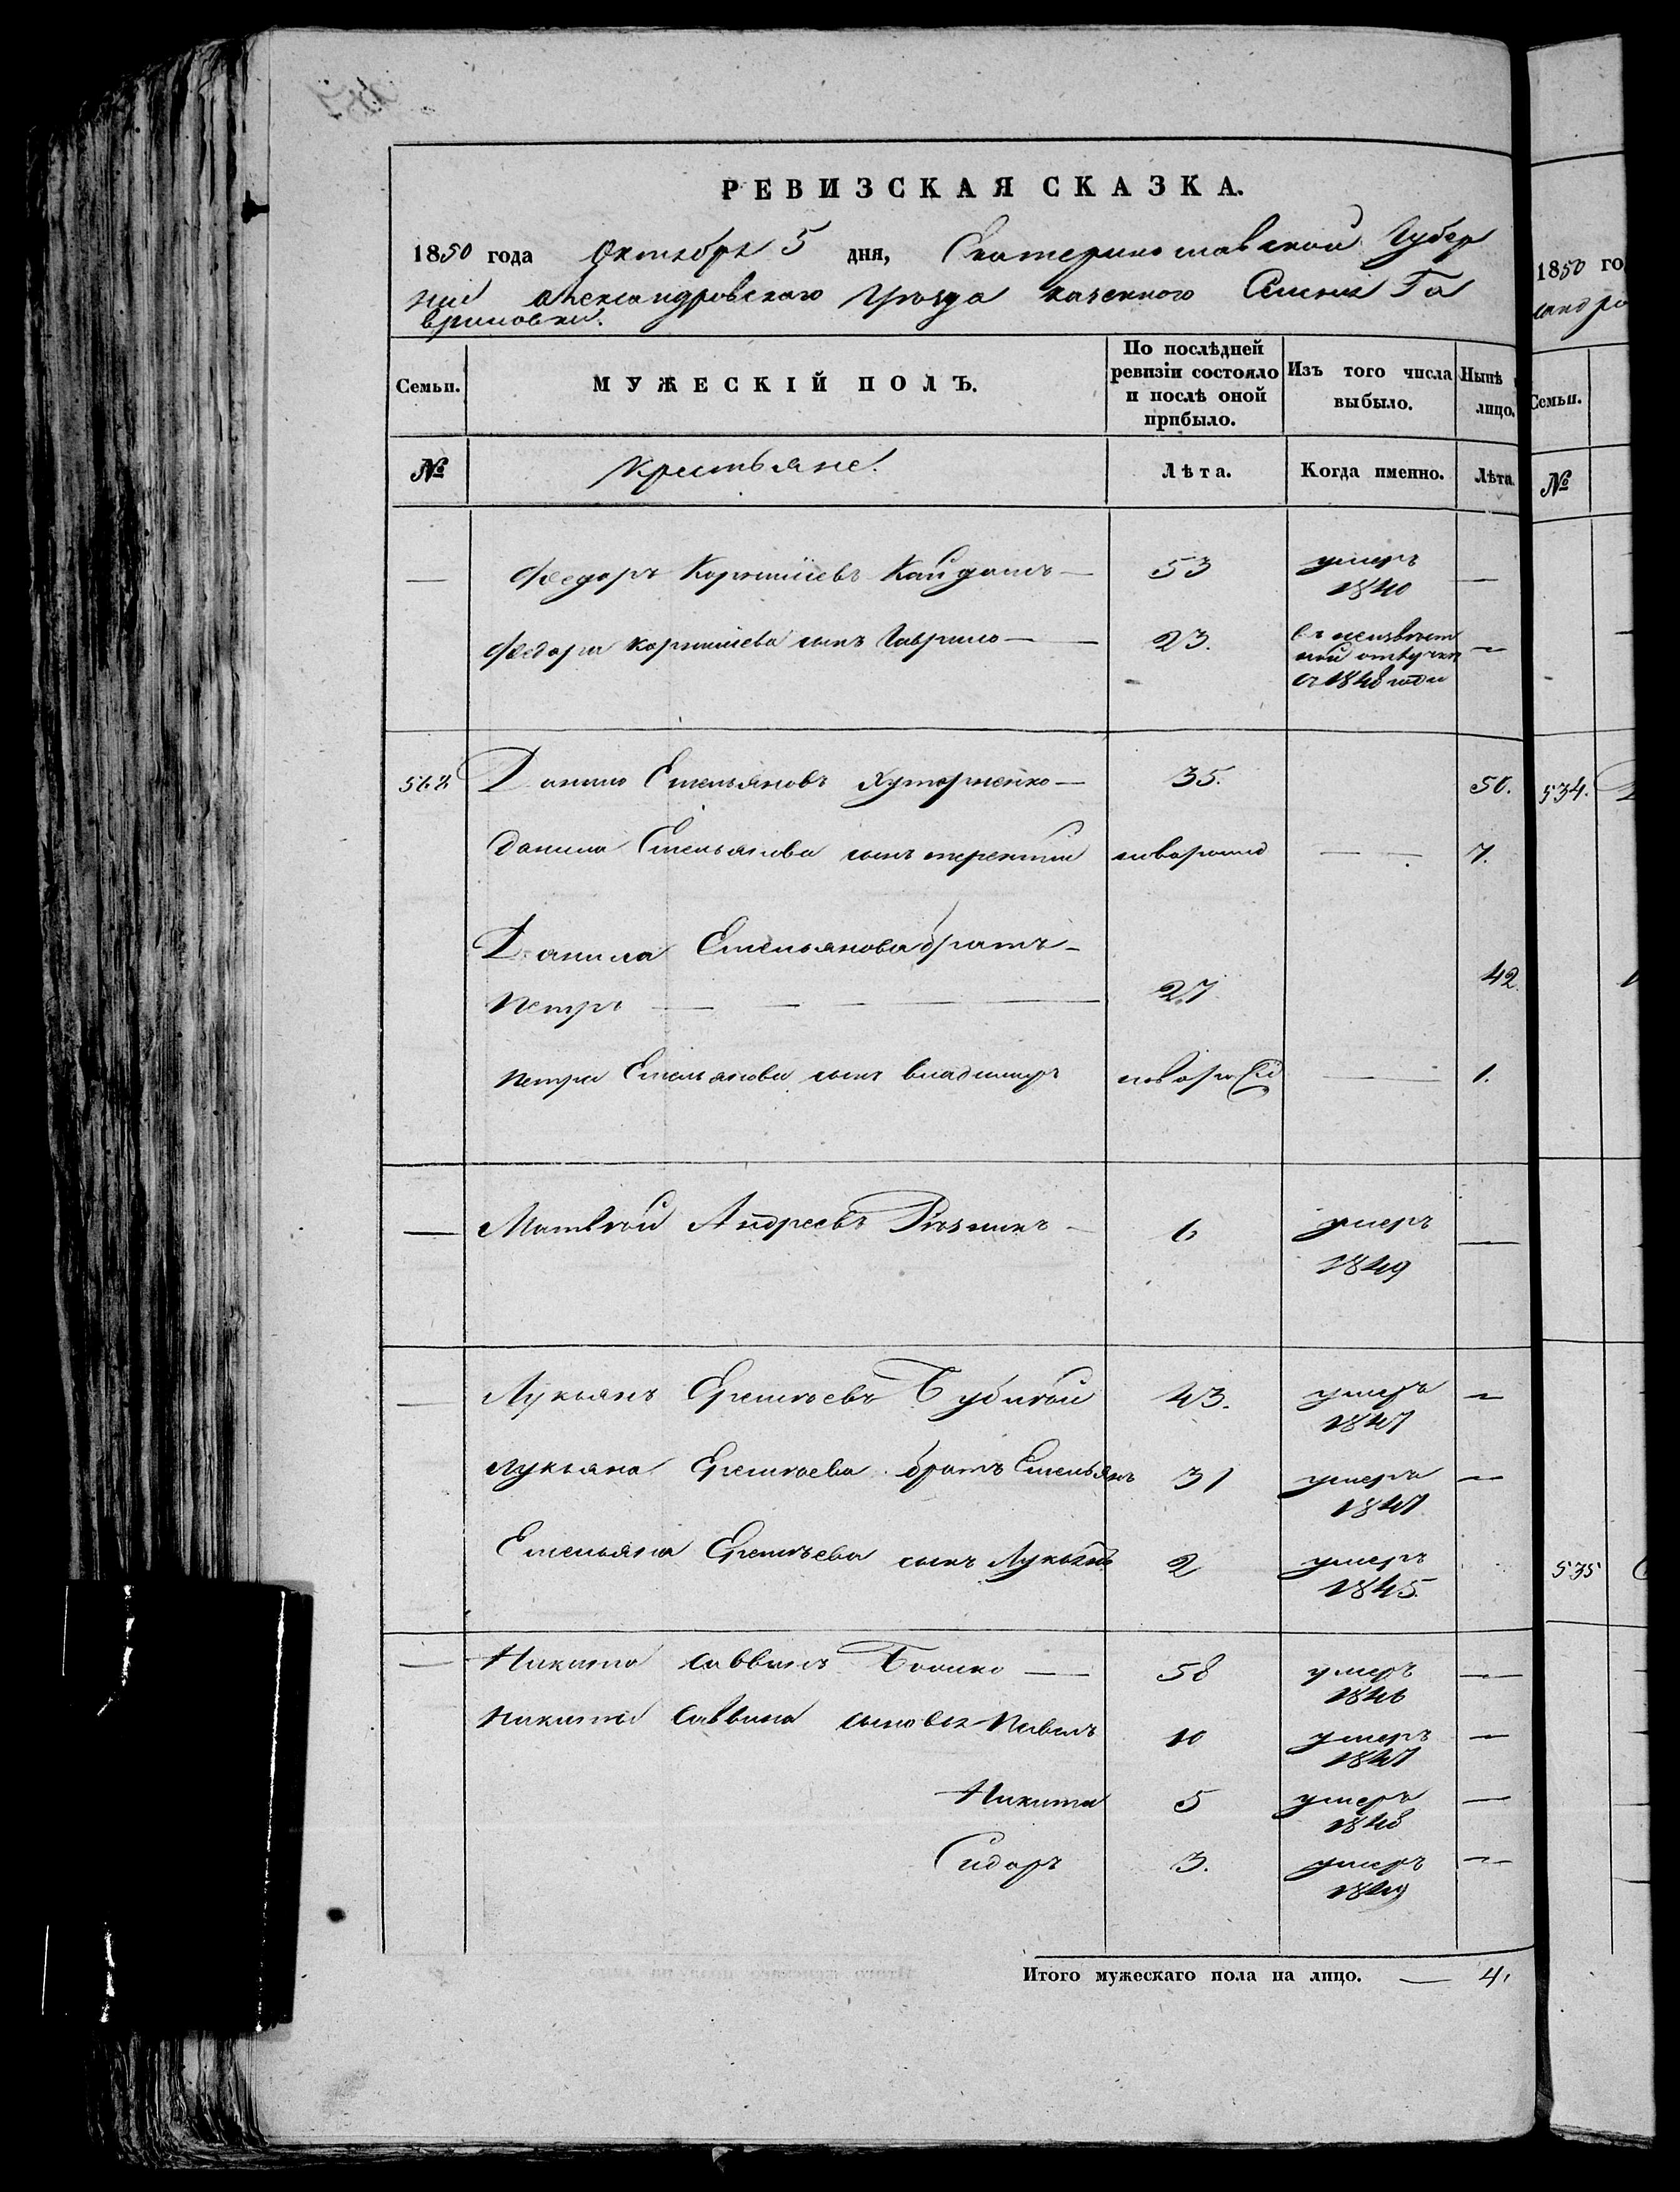 РЕВИЗСКАЯ СКАЗКА.
1850 года Октября 5 дня, Екатеринославской Губер
ніи Александровскаго Уѣзда казенного Селенія Га
вриловки.
Семьи. МУЖЕСКІЙ ПОЛЪ. По послѣдней ревизіи состояло и послѣ оной прибыло. Изъ того числа выбыло. Нынѣ лицо.
№ Крестьяне. Лѣта. Когда именно. Лѣта.
— Федоръ Корнѣиевъ Кайдашъ — 53 умеръ 1840 —
Федора Корнѣиева сынъ Гаврило — 23. въ неизвѣст
ной отлучкѣ —
съ 1848 года
562 Данило Емельяновъ Хуторненко — 35. 50.
Данила Емельянова сынъ терентій новорожд — 7.
Данила Емельянова братъ —
Петръ — 27 42.
Петра Емельянова сынъ владимиръ новорож — 1.
— Матвѣй Андреевъ Рѣзникъ — 6 умеръ 1849 —
— Лукьянъ Еремѣевъ 43. умеръ 1847 —
Лукьяна Еремѣева братъ Емельянъ 31 умеръ 1847 —
Емельяна Еремѣева сынъ Лукьянъ 2 умеръ 1845.
— Никита Саввинъ — 58 умеръ 1846 —
Никиты Саввина сыновья Павелъ 10 умеръ 1847 —
Никита 5 умеръ 1848 —
Сидоръ 3. умеръ 1849 —
Итого мужескаго пола на лицо. — 4.
1850 го
Семьи.
№
534.
535